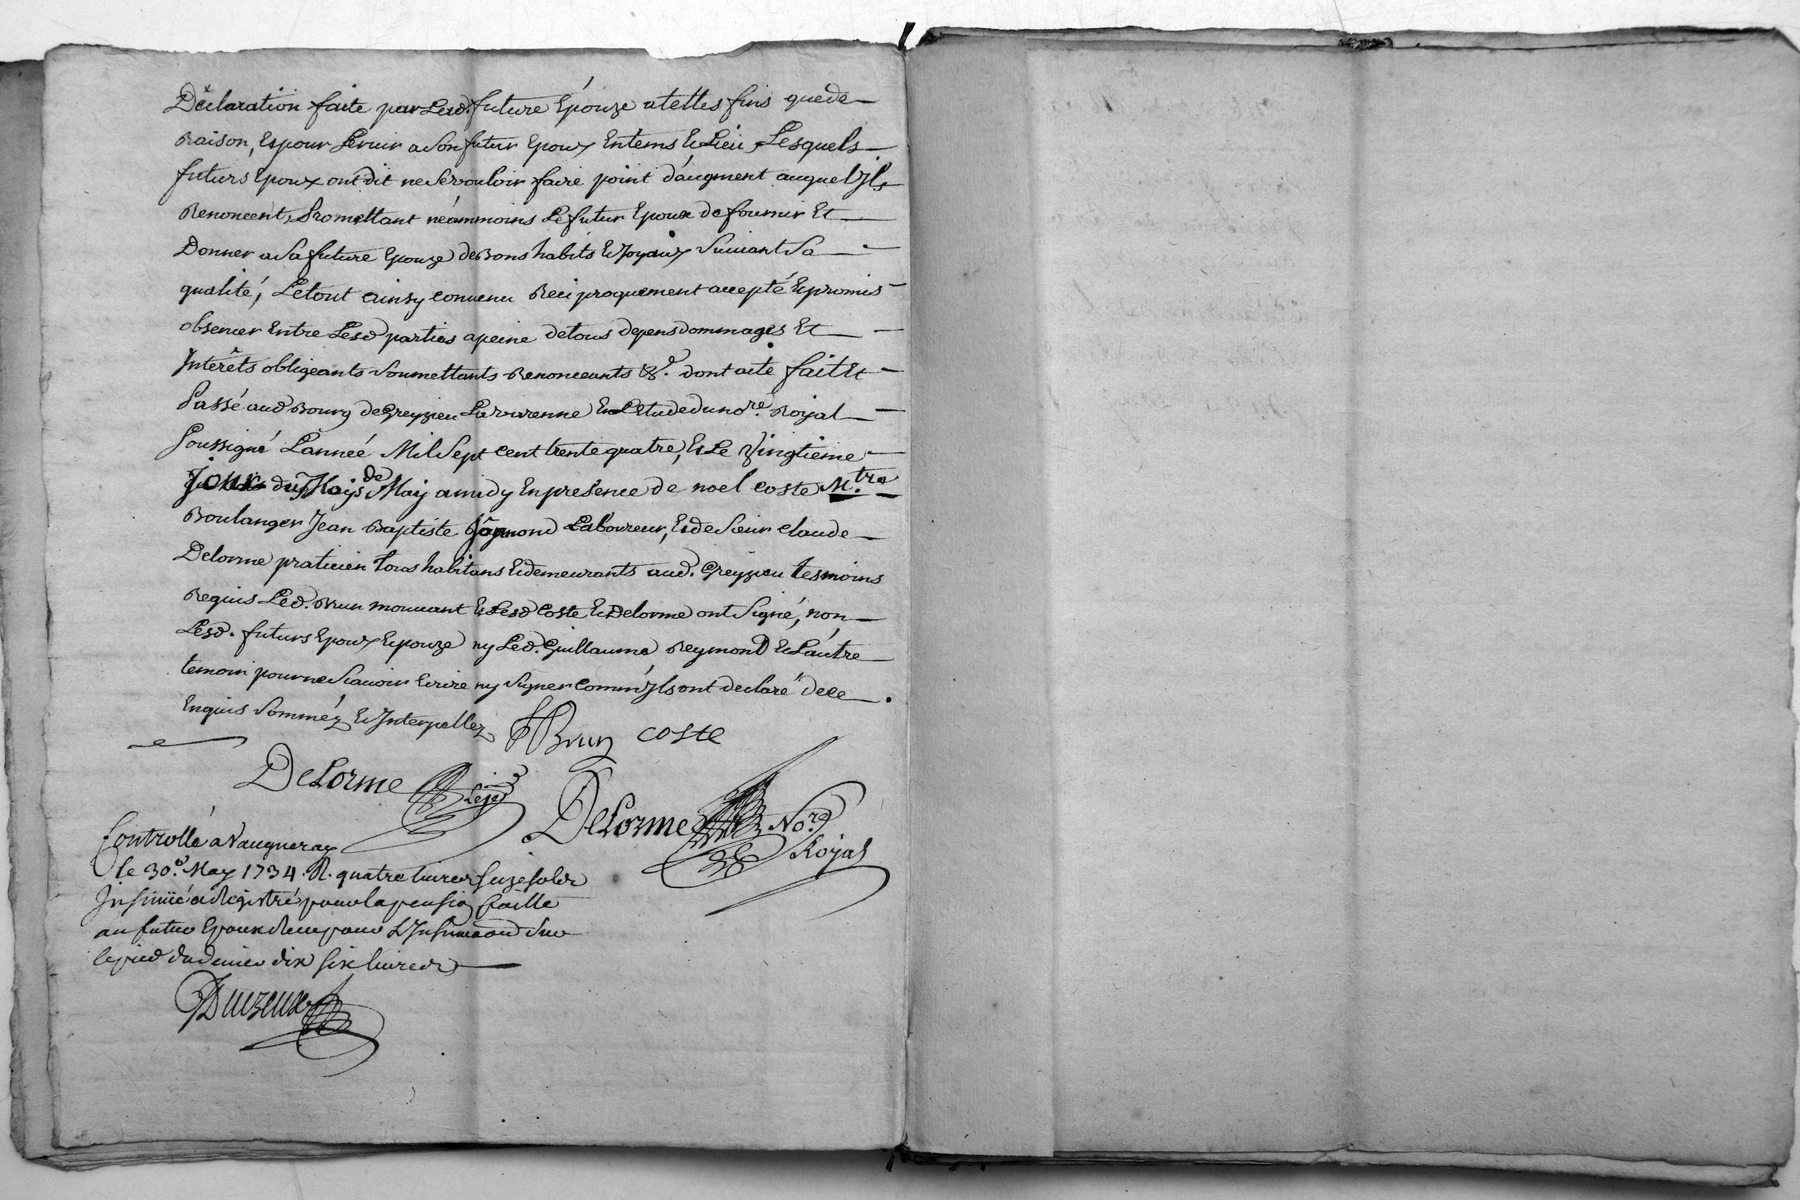 Déclaration faite par Lesd. future Epouze a telles fins que de
Raison, Et pour Servir a Son futur Epoux En tems & Lieu, Lesquels
futurs Epoux ont dit ne Se vouloir faire point d'augment auquel jls
Renoncent, Promettant néammoins Le futur Epoux de fournir Et
Donner a Sa future Epouze de Bons habits & Joyaux Suivant Sa
qualité, Le tout ainsy convenu Reciproquement accepté & promis
observer Entre Lesd parties a peine de tous depens dommages Et
Interêts obligeants Soumettants Renonceants &c. dont acte fait Et
Passé aud Bourg de Greyzieu La varenne En L'Etude du nore. Royal
Soussigné L'année Mil Sept cent trente quatre, Et Le Vingtieme
Jour du Mois de May a midy En presence de noel coste Mtre
Boulanger Jean Baptiste Laboureur, Et de Sieur claude
Delorme praticien tous habitans & demeurants aud. Greyzieu tesmoins
Requis Led. Brun mouvant & Lesd Coste & Delorme ont Signé, non
Lesd. futurs Epoux & Epouze ny Led. Guillaume Reymond & L'autre
temoin pour ne Scavoir Ecrire ny Signer comm'jls ont declaré de ce
Enquis Sommez & Interpellez
Brun coste
DeLorme
DeLorme Nore
Royal
Controllé a Vaugneray
le 30e. May 1734. R. quatre livres seize sols
Insinué & Registré pour la pension faitte
au futur Epoux Receu pour L'Insinuaon Sur
le pied du denier dix six livres